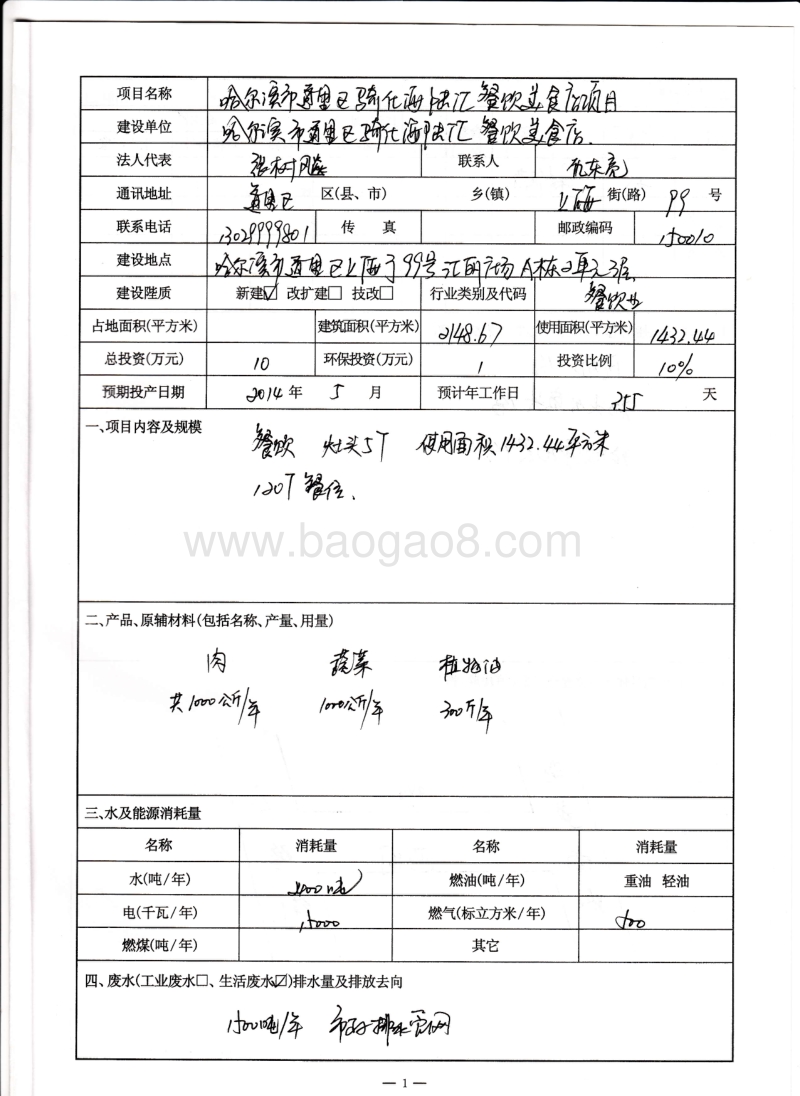 项目名称 哈尔滨市道里区骑仕海陆汇餐饮美食店项目
建设单位 哈尔滨市道里区骑仕海陆汇餐饮美食店.
法人代表 张树 联系人 东亮
通讯地址 道里区 区(县、市) 乡(镇) 上海 街(路) 99 号
联系电话 13029999801 传 真 邮政编码 150010
建设地点 哈尔滨市道里区上海 99号汇明广场A栋2单元3层
建设陛质 新建☑ 改扩建□ 技改□ 行业类别及代码 餐饮业
占地面积(平方米) 建筑面积(平方米) 2148.67 使用面积(平方米) 1432.44
总投资(万元) 10 环保投资(万元) 1 投资比例 10%
预期投产日期 2014 年 5 月 预计年工作日 355 天
一、项目内容及规模
餐饮 灶头5个 使用面积1432.44平方米
120个餐位、
www.baogao8.com
二、产品、原辅材料(包括名称、产量、用量)
肉 蔬菜 植物油
共1000公斤/年 1000公斤/年 300斤/年
三、水及能源消耗量
名称 消耗量 名称 消耗量
水(吨/年) 2000吨 燃油(吨/年) 重油 轻油
电(千瓦/年) 15000 燃气(标立方米/年) 500
燃煤(吨/年) 其它
四、废水(工业废水□、生活废水☑)排水量及排放去向
1500吨/年 市政排水管网
— 1 —